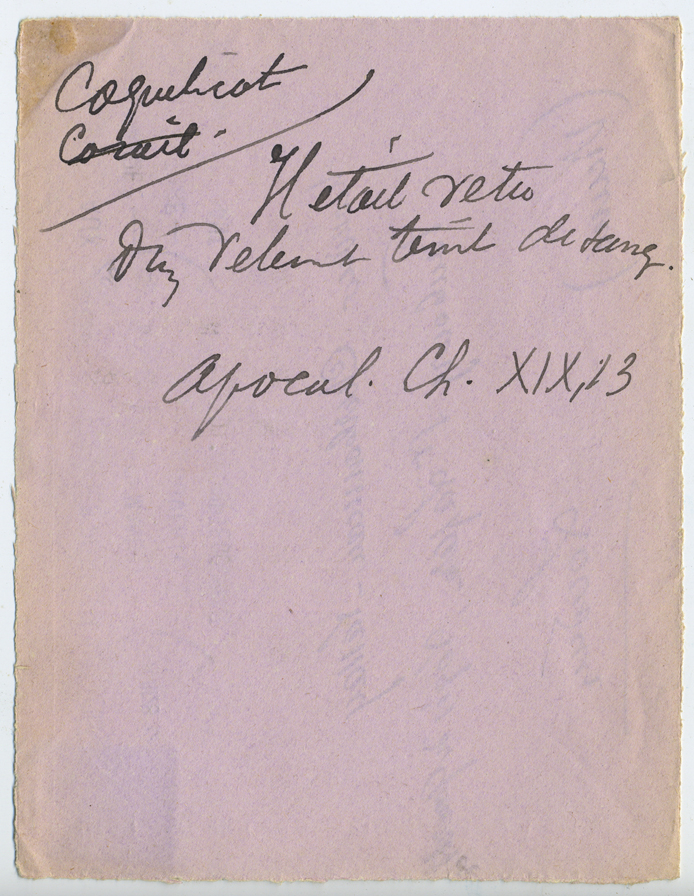 Coquelicot
Corail.
Il était vetu
d'un vetement teint de sang.
Apocal. Ch. XIX, 13